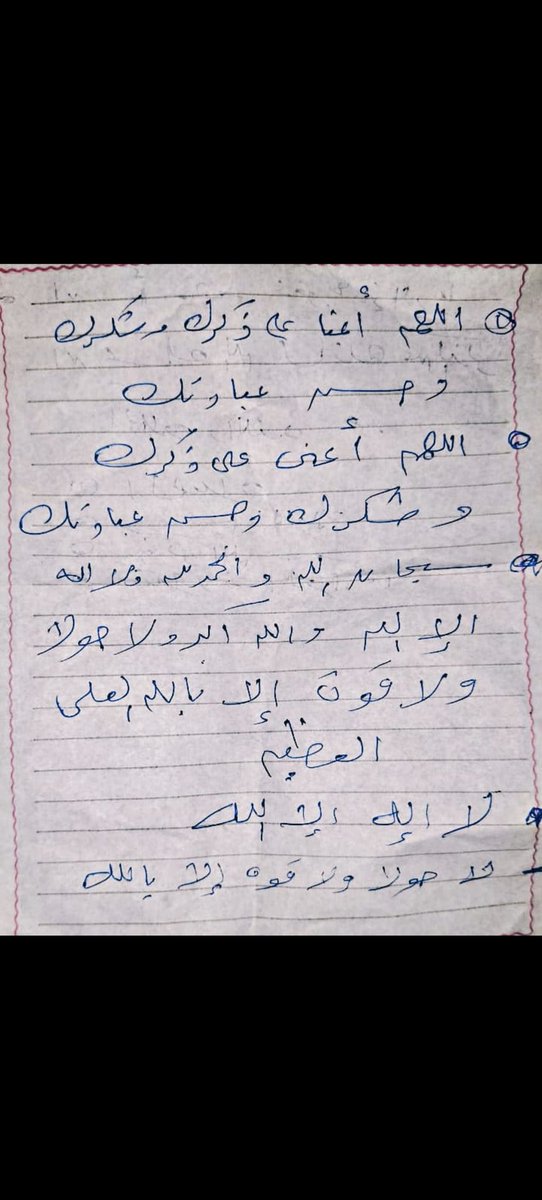 اللهم أعنا على ذكرك وشكرك
وحسن عبادتك
اللهم أعنى على ذكرك
وشكرك وحسن عبادتك
سبحان الله والحمد لله ولا اله
الا الله والله أكبر ولا حولا
ولا قوة إلا بالله العلى
العظيم
لا اله الا الله
لا حولا ولا قوه إلا بالله